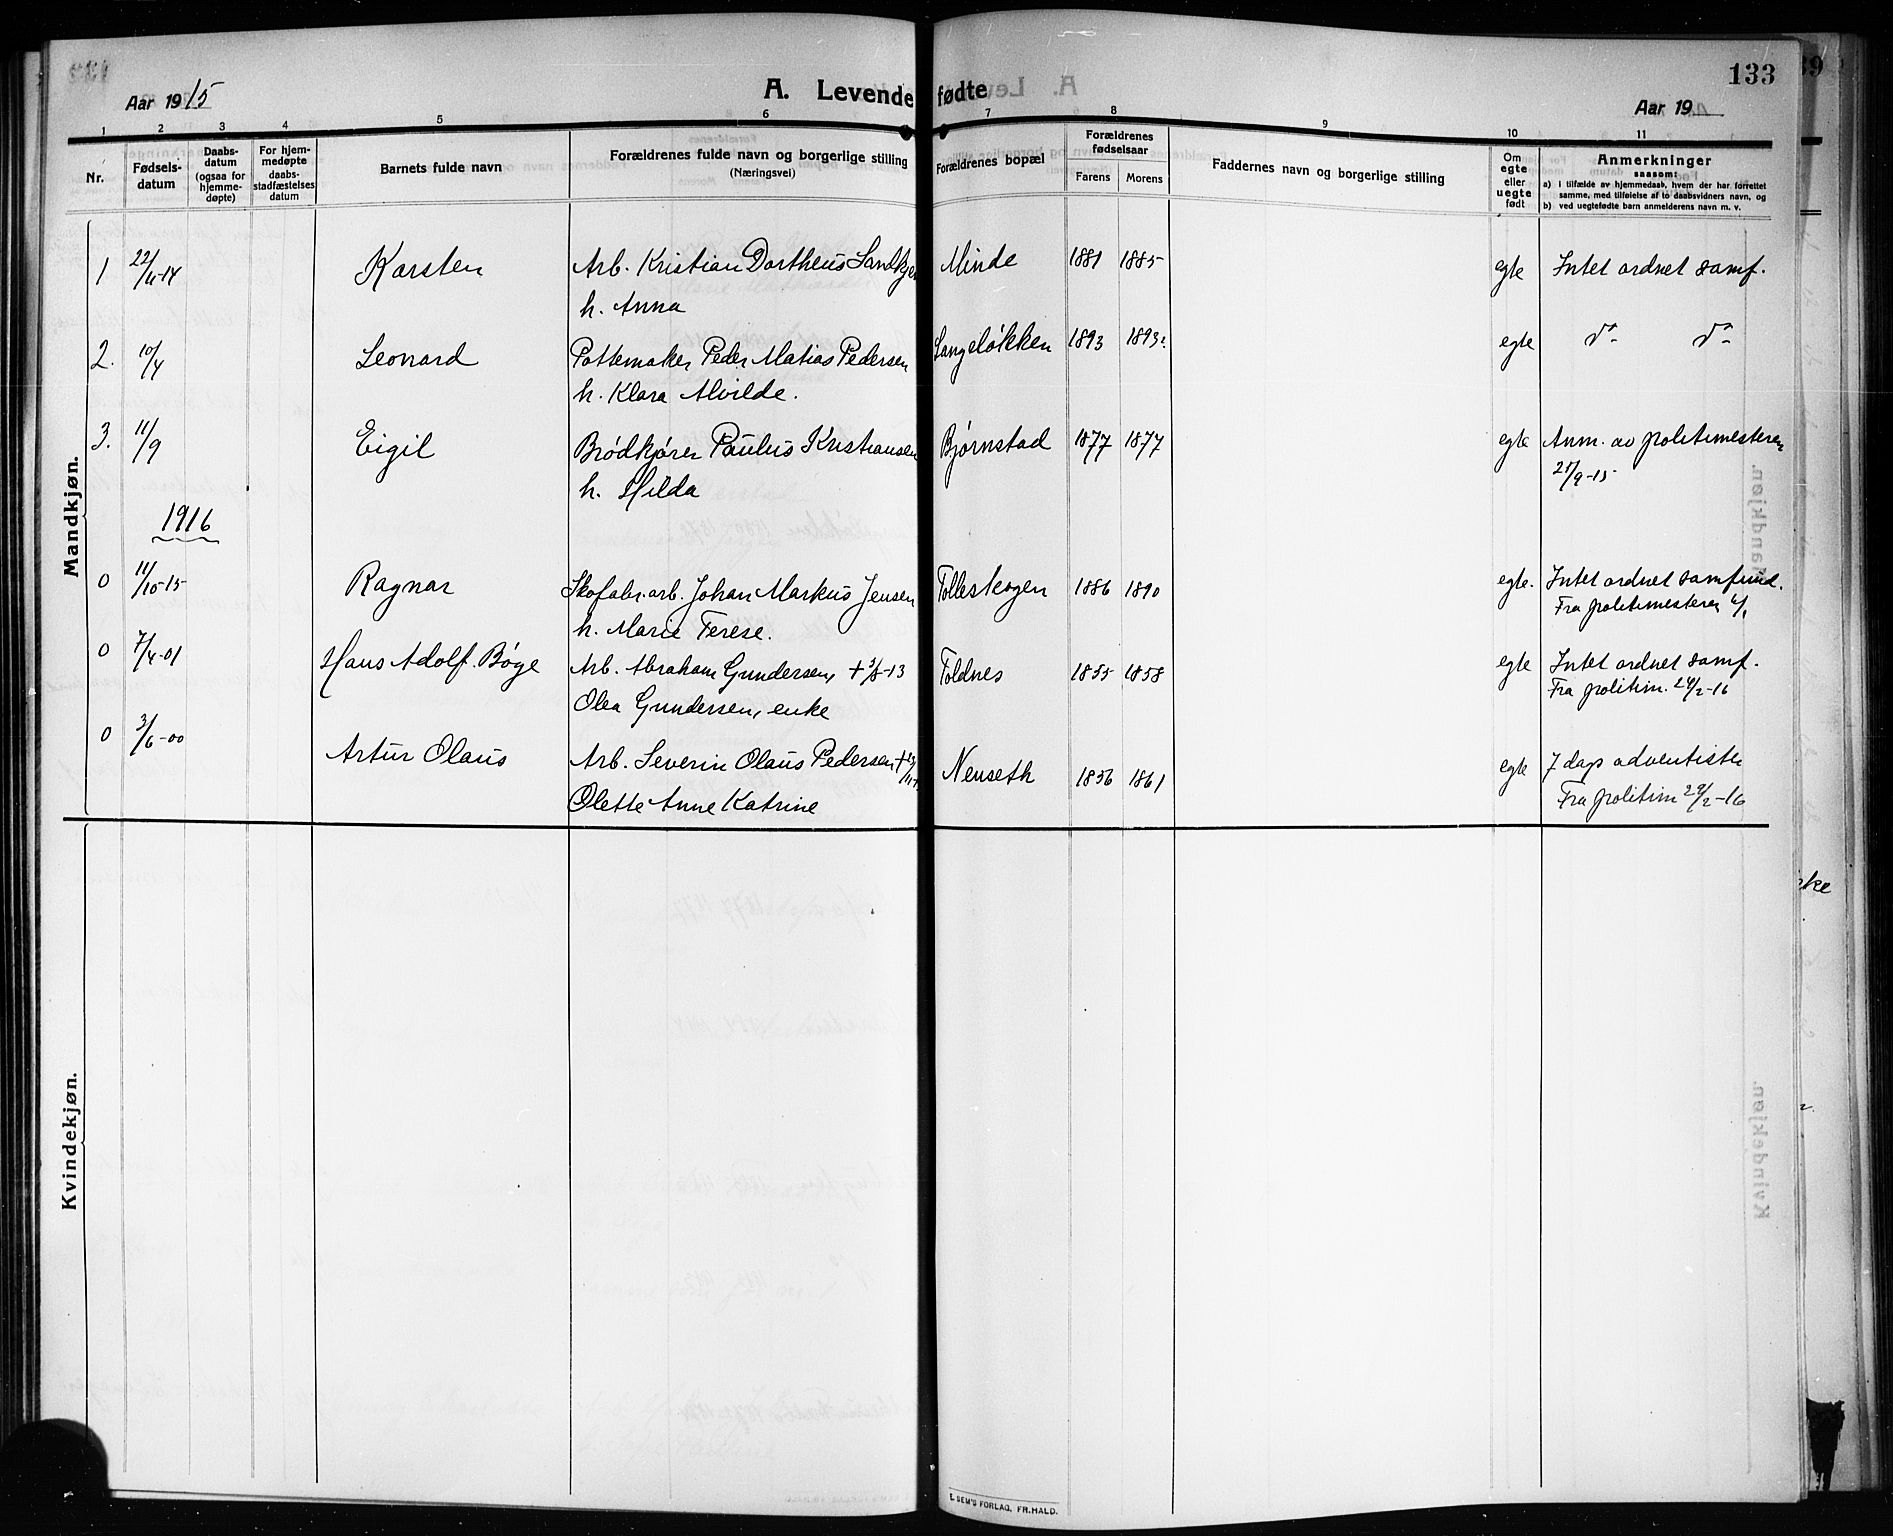 133
Aar 1915
A. Levende fødte
Aar 19
1 2 3 4 5 6 7 8 9 10 11
Nr.
Fødsels-
datum
Daabs-
datum
(ogsaa for
hjemme-
døpte)
For hjem-
medøpte
daabs-
stadfæstelses
datum
Barnets fulde navn
Forældrenes fulde navn og borgerlige stilling
(Næringsvei)
Forældrenes bopæl
Forældrenes
fødselsaar
Farens Morens
Faddernes navn og borgerlige stilling
Om
egte
eller
uegte
født
Anmerkninger
saasom:
a) I tilfælde av hjemmedaab, hvem der har forrettet
samme, med tilføielse af to daabsvidners navn, og
b) ved uegtefødte barn anmelderens navn m. v.
Mandkjøn.
1 22/ -14 Karsten Arb. Kristian Dortheus Minde 1881 1885 egte Intet ordnet samf.
h. Anna
2. 10/4 Leonard Pottemaker Peder Matias Pedersen Langeløkken 1893 1893 egte do do
h. Klara Alvilde.
3. 11/9 Eigil Brødkjører Paulus Kristiansen Bjørnstad 1877 1877 egte Anm. av politimesteren
h. Hilda /9-15
1916
0 11/10-15 Ragnar Skofabr.arb. Johan Markus Jensen Tolleskogen 1886 1890 egte. Intet ordnet samfund.
h. Marie Terese. Fra politimesteren
0 7/4-01 Hans Adolf Bøge Arb. Abraham Gundersen, + -13 Foldnes 1855 1858 egte Intet ordnet samf.
Olea Gundersen, enke Fra politim. 24/2-16
0 3/6-00 Artur Olaus Arb. Severin Olaus Pedersen + Neuseth 1856 1861 egte 7 dags adventister
Olette Anne Katrine Fra politim 29/2-16
Kvindekjøn.
E. SEM'S FORLAG, FR.HALD.